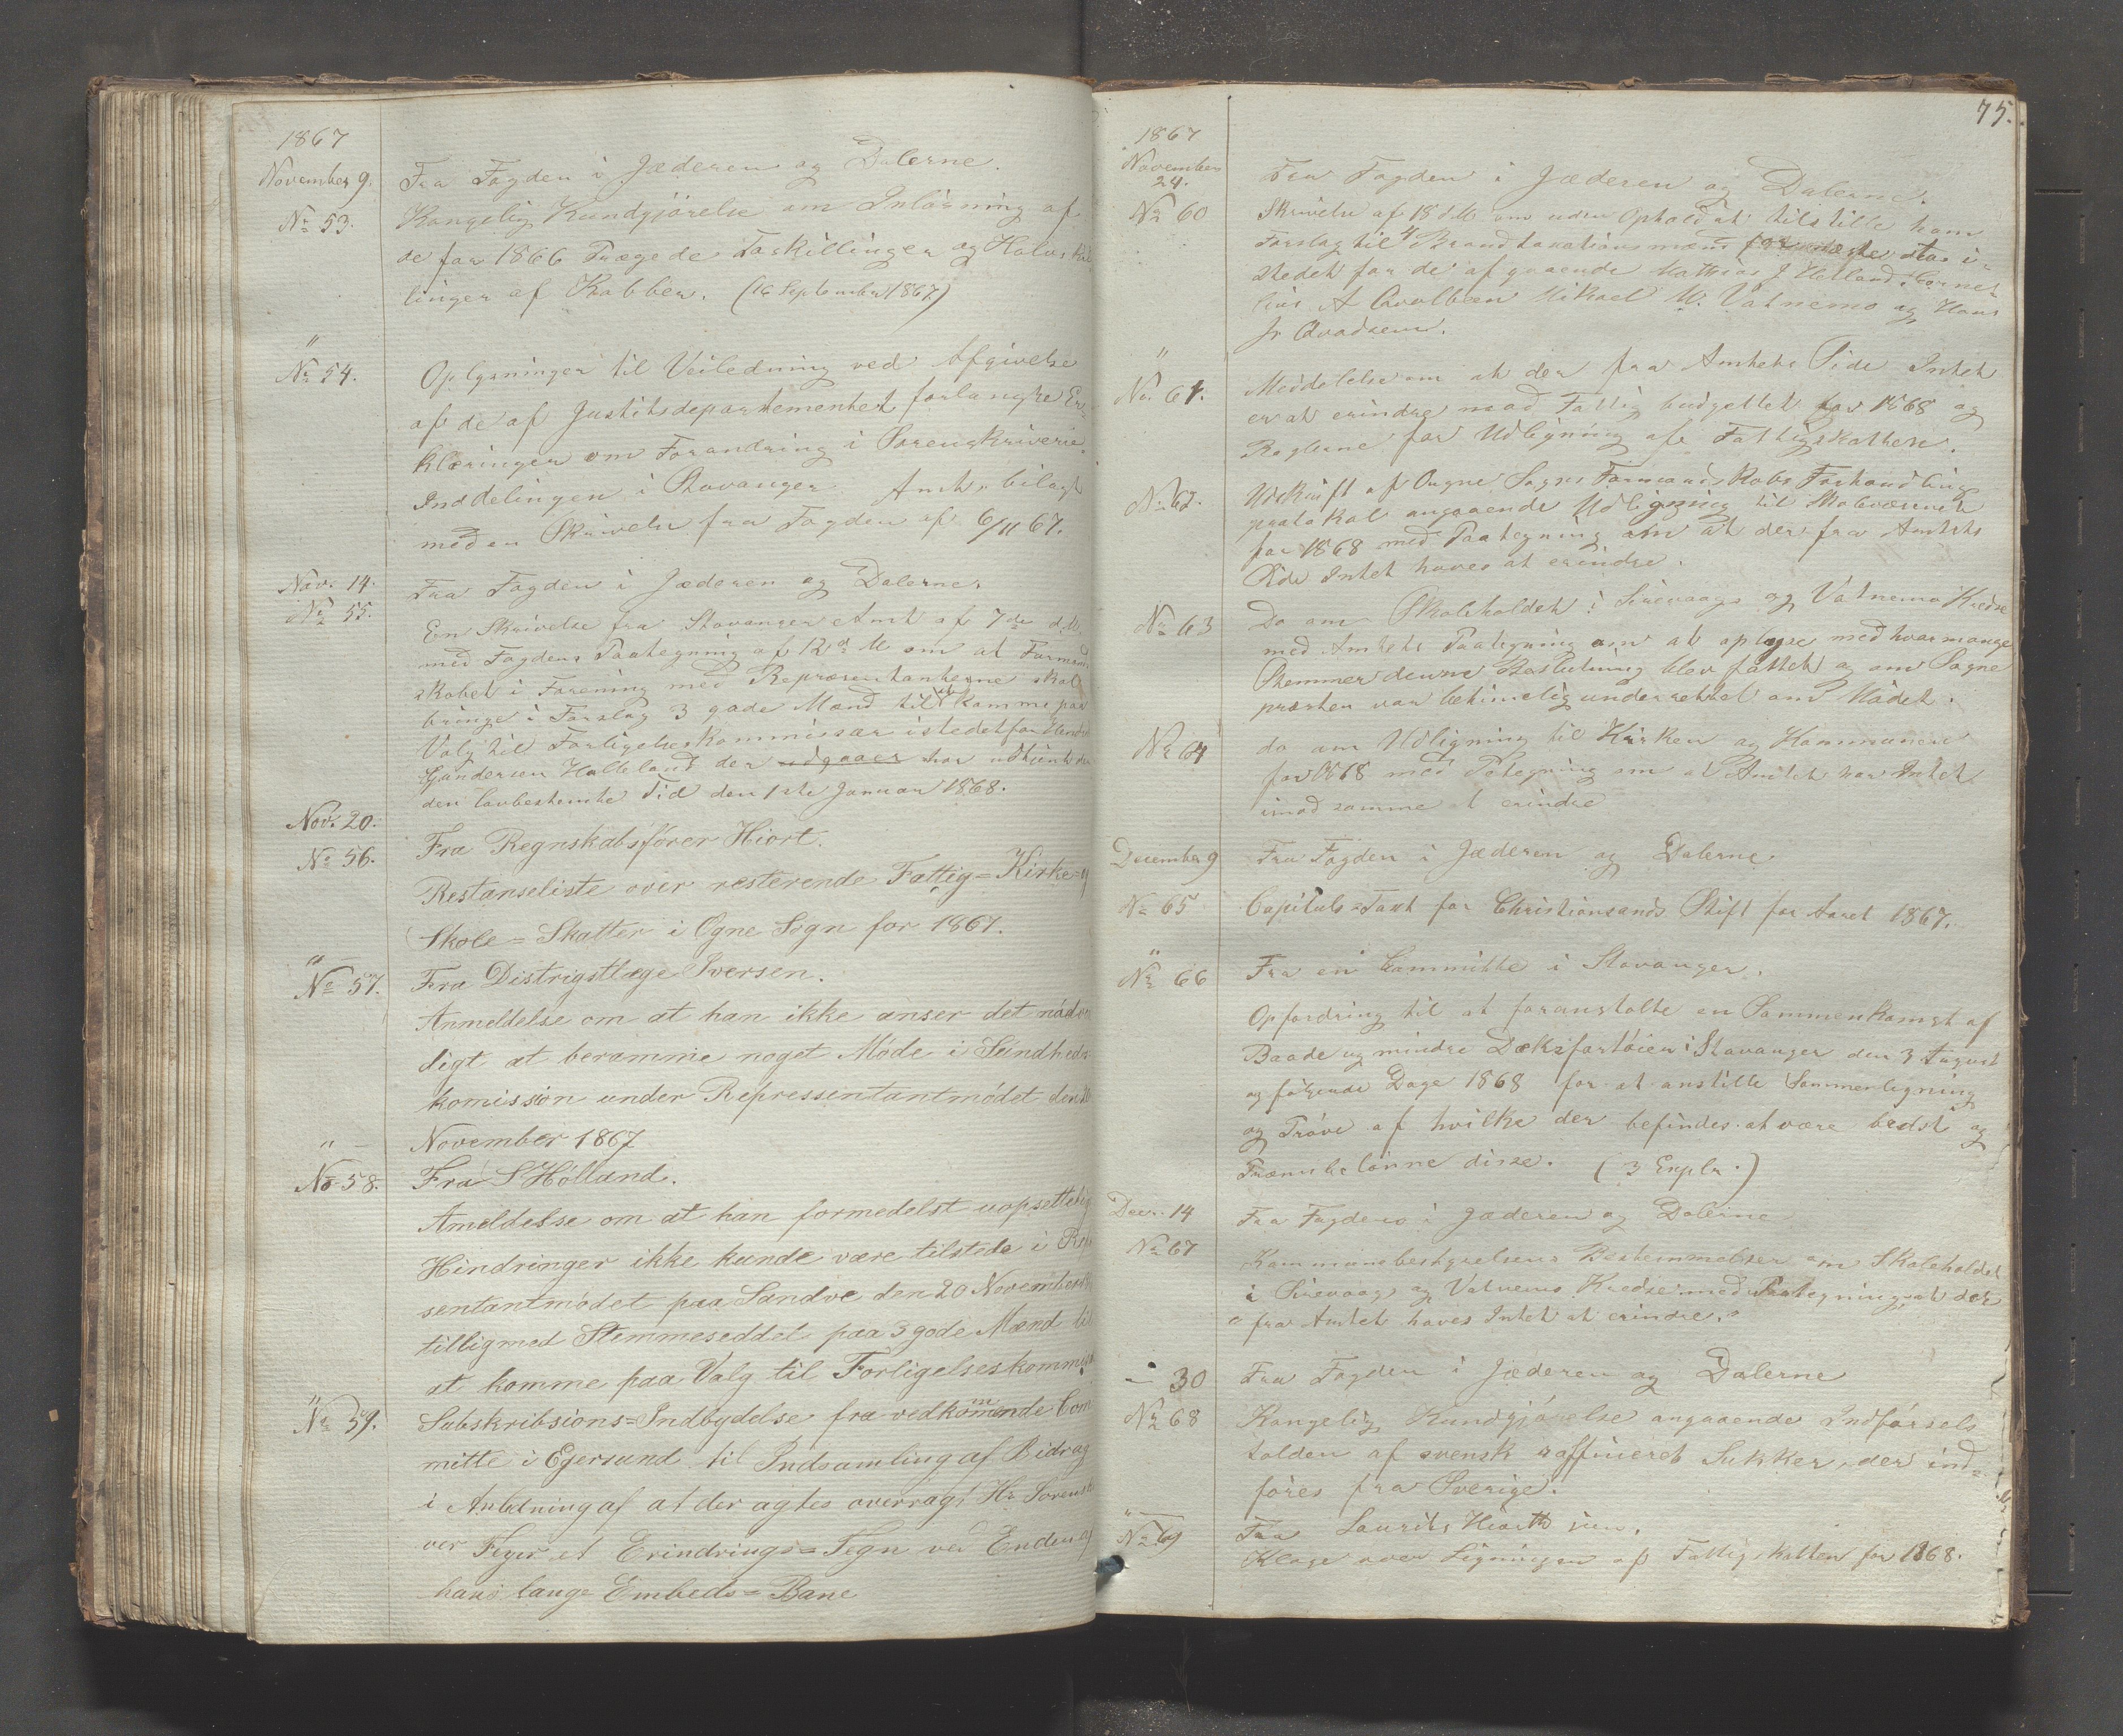 1867
November 9.
Fra Fogden i Jæderen og Dalerne.
No 53.
Kongelig Kundgjörelse om Inlösning af
de for 1866 Prægede Toskillinger og Halvskil
linger af Kobber. (16 September 1867)
"
No 54.
Oplysninger til Veiledning ved Afgivelse
af de af Justitsdepartementet forlangte Er=
klæringer om Forandring i Sorenskriverie
Inddelingen i Stavanger Amt, bilagt
med en Skrivelse fra Fogden af 6/11 67.
Nov. 14.
Fra Fogden i Jæderen og Dalerne.
No 55.
En Skrivelse fra Stavanger Amt af 7de d.M.
med Fogdens Paategning af 12 d M om at Formand
skabet i Forening med Repræsentanterne skal
bringe i Forslag 3 gode Mænd til at komme paa
Valg til Forligelseskommissær istedetfor
Gundersen Helleland der udgaaer har udtient
den lovbestemte Tid den 1ste Januar 1868.
Nov. 20.
Fra Regnskabsförer Hiort.
No 56.
Restanseliste over resterende Fattig= Kirke= og
Skole= Skatter i Ogne Sogn for 1867.
"
No 57.
Fra Distrigstlæge Sversen.
Anmeldelse om at han ikke anser det nödven
digt at beramme noget Möde i Sundheds=
komission under Repressentantmödet den 20
November 1867
"
No 58.
Fra S Hölland.
Ameldelse om at han formedelst uopsettelig
Hindringer ikke kunde være tilstede i Repr
sentantmödet paa Sandve den 20 November
tilligmed Stemmeseddel paa 3 gode Mænd til
at komme paa Valg til Forligelseskommis
"
No 59.
Subskribsions=Indbydelse fra vedkommende Com
mitte i Egersund til Indsamling af Bidrag
i Anledning af at der agtes overragt Hr Sorenskri
ver Feyer et Erindrings=Tegn ved Enden af
hans lange Embeds=Bane
75.
1867
November
24.
Fra Fogden i Jæderen og Dalerne.
No 60
Skrivelse af 18 d M om uden Ophold at tilstille ham
Forslag til 4 Brandtaxationsmænd
stedet for de afgaaende Mathias J Helland, Corne=
lius A Qvalbein Mikael M. Vatnemo og Hans
Jr Qvadsem.
"
No 61.
Meddelelse om at der fra Amtets Side Intet
er at erindre mod Fattigbudgettet for 1868 og
Reglerne for Udligning af Fattigskatten.
No 62.
Udskrift af Ougne Sogns Formandskabs Forhandlings
protokol angaaende Udligning til Skolevæsenet
for 1868 med Paategning om at der fra Amtets
Side Intet haves at erindre.
No 63
Do om Skoleholdet i Sirevaags og Vatnemo Kredse
med Amtets Paategning om at oplyse med hvor mange
Stemmer denne Beslutning blev fattet og om Sogne
præsten var betimelig underrettet om Mödet.
No 64
do om Udligning til Kirken og Kommunen
for 1868 med Petegning om at Amtet har Intet
imod samme at erindre
December 9
Fra Fogden i Jæderen og Dalerne.
No 65
Capitels=Taxt for Christiansands Stift for Aaret 1867.
"
No 66
Fra en Committe i Stavanger.
Opfordring til at foranstalte en Sammenkomst af
Baade og mindre Dæksfartöier i Stavanger den 3 August
og fölgende Dage 1868 for at anstille Sammenligning
og Pröve af hvilke der befindes at være bedst og
Præmiebelönne disse. (3 Explr.)
Decr. 14
Fra Fogden i Jæderen og Dalerne
No 67
Kommunebestyrelsens Bestemmelser om Skoleholdet
i Sirevaag og Vatnemo Kredse med Paategning, at der
"fra Amtet haves Intet at erindre."
— 30
Fra Fogden i Jæderen og Dalerne
No 68
Kongelig Kundgjörelse angaaende Indförsels
tolden af svensk raffineret Sukker, der ind=
föres fra Sverige.
"
No 69
Fra Laurits Hiorth jun.
Klage over Ligningen af Fattigskatten for 1868.